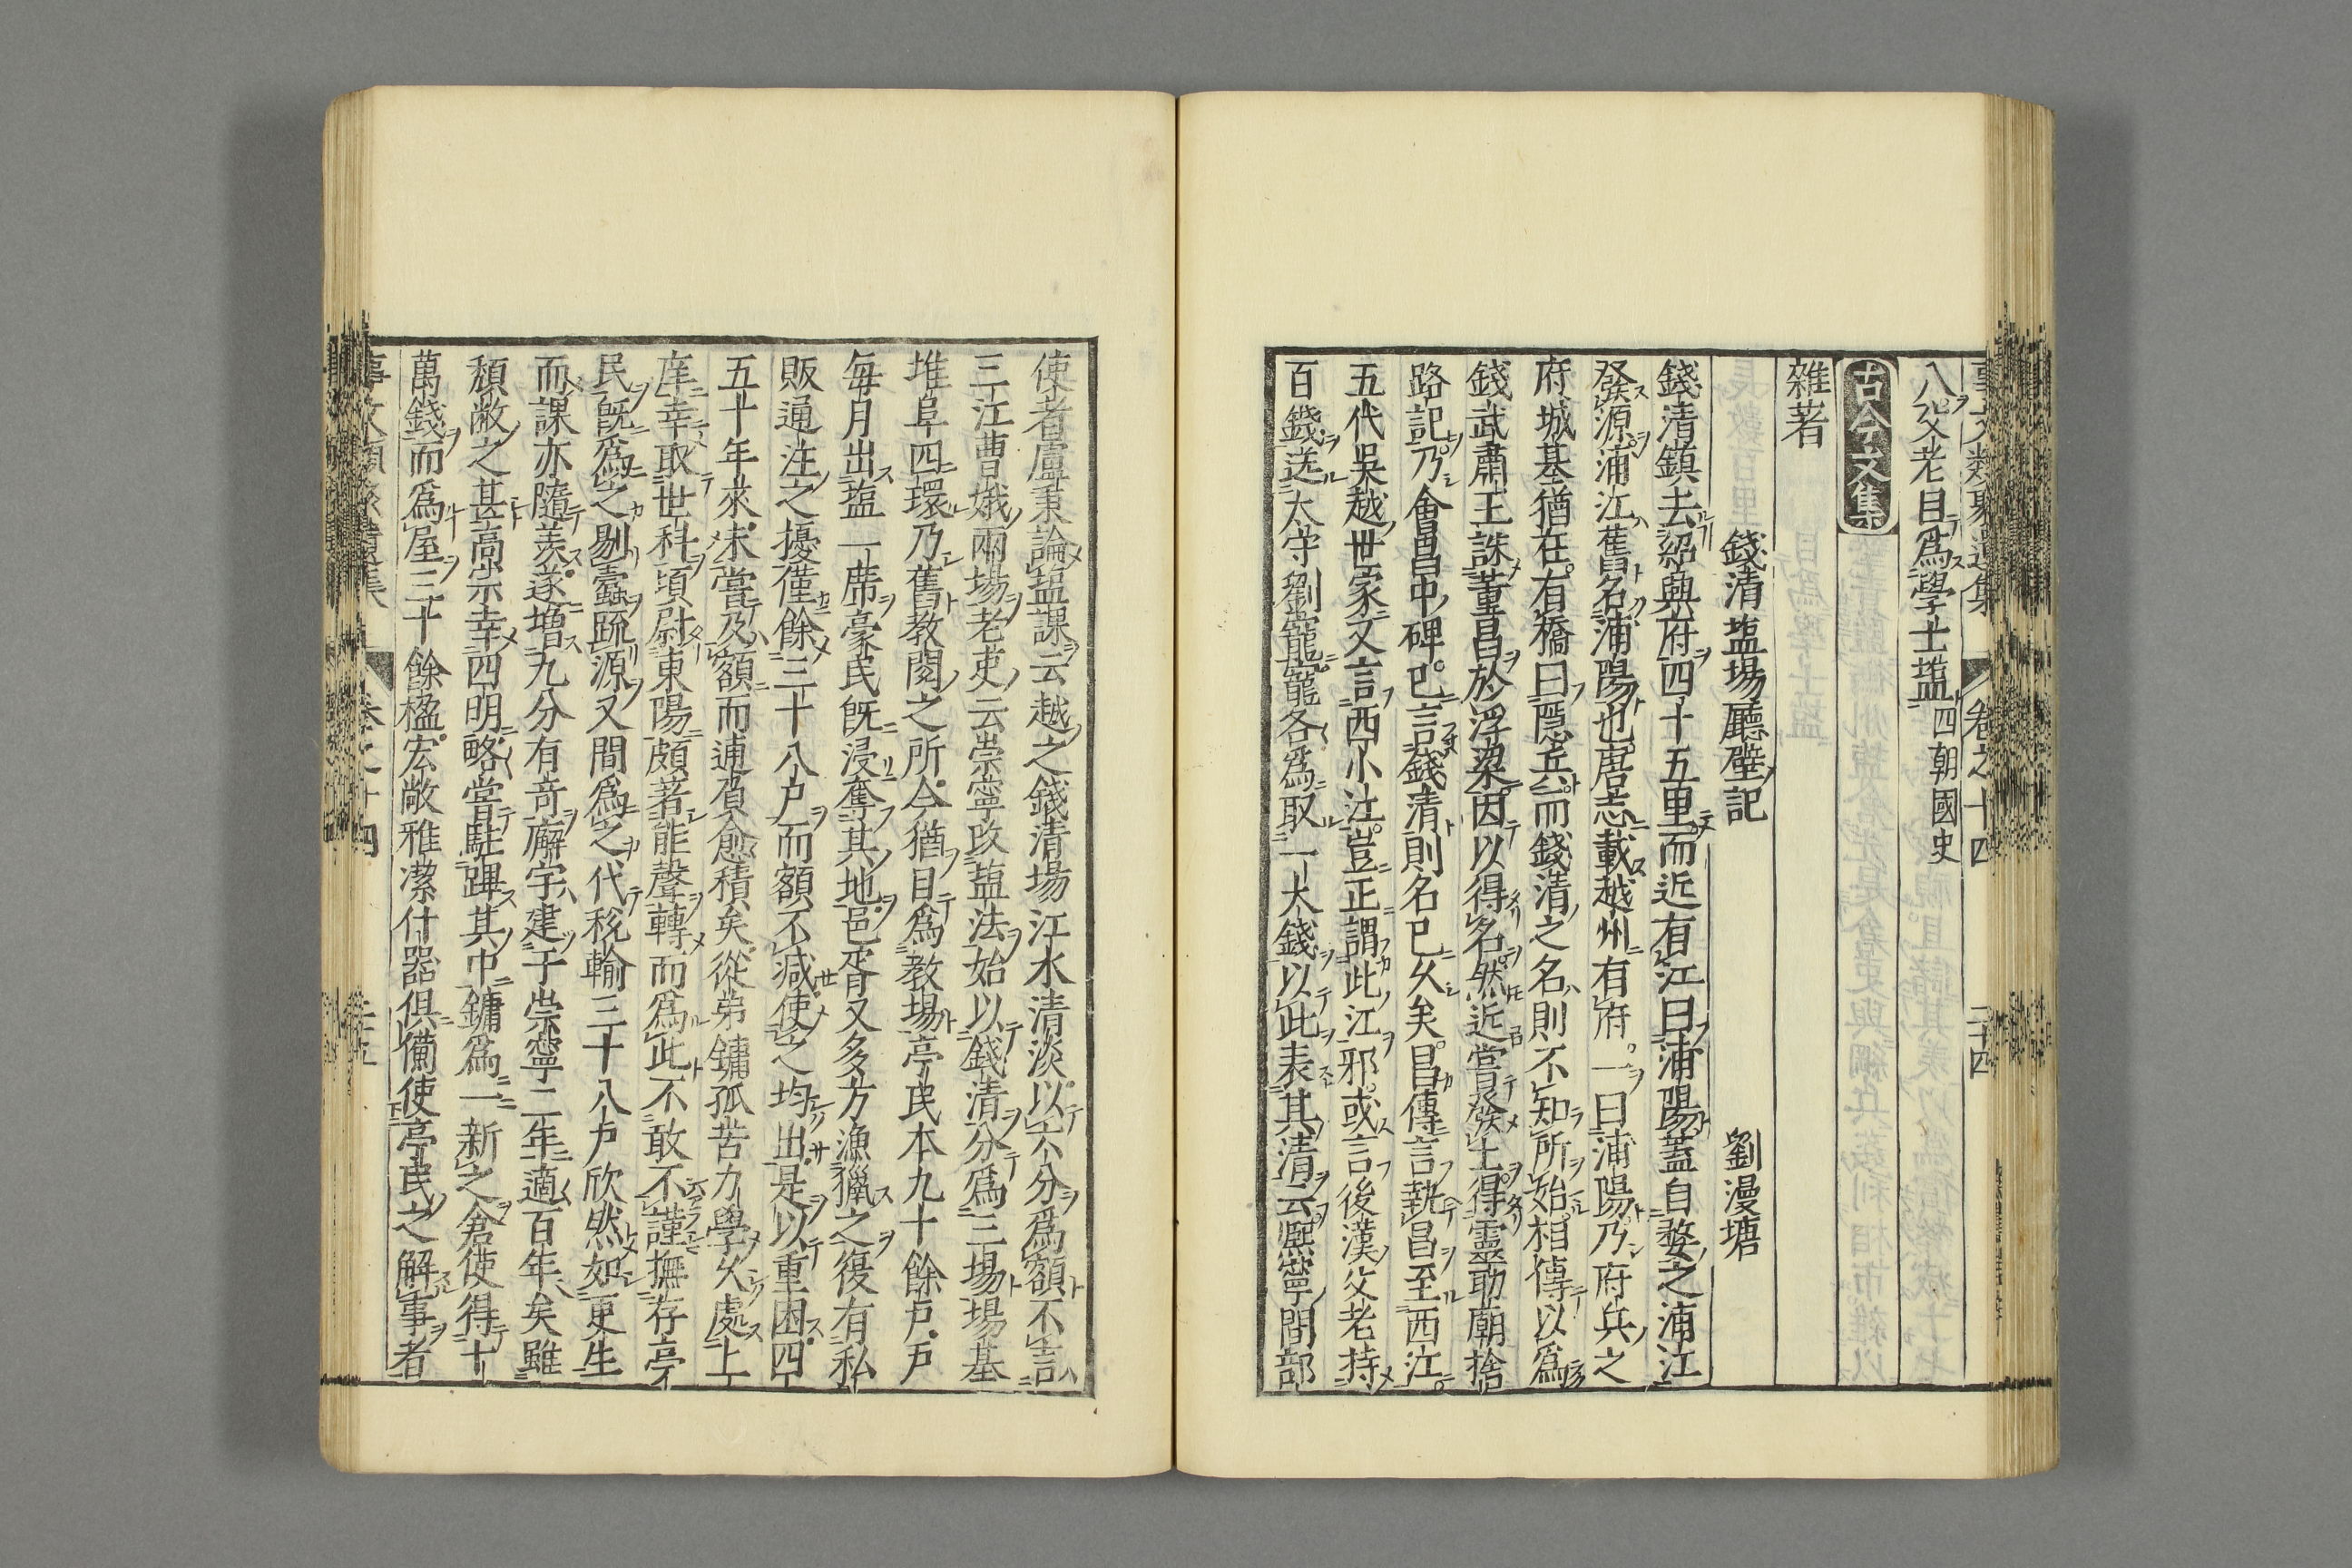 事文類聚遺集 卷之十四 二十四
八父老目爲學士塩 四朝國史
古今文集
雜著
錢清塩場廳壁記 劉漫塘
錢清鎮去紹興府四十五里而近有江曰浦陽蓋自婺之浦江
發源浦江舊名浦陽也唐志載越州有府一曰浦陽乃府兵之
府城基猶在有橋曰隱兵而錢清之名則不知所始相傳以爲
錢武肅王誅董昌於浮梁因以得名然近嘗發土得靈助廟捨
路記乃會昌中碑已言錢清則名已久矣昌傳言執昌至西江
五代吳越世家又言西小江豈正謂此江邪或言後漢父老持
百錢送太守劉寵寵各爲取一大錢以此表其清云熈寧間部
使者盧秉論塩課云越之錢清場江水清淡以六分爲額不言
三江曹娥兩場老吏云崇寧改塩法始以錢清分爲三場場基
堆阜四環乃舊教閱之所今猶目爲教場亭民本九十餘戶戶
每月出塩一席豪民旣浸奪其地邑胥又多方漁獵之復有私
販通注之擾僅餘三十八户而額不減使之均出是以重困四
五十年來未嘗及額而逋負愈積矣從弟鏞孤苦力學久處上
庠幸取世科頃尉東陽頗著能聲轉而爲此不敢不謹撫存亭
民旣爲之剔蠹疏源又間爲之代稅輸三十八户欣然如更生
而課亦隨羡遂増九分有竒廨宇建于崇寧二年適百年矣雖
頹敝之甚高宗幸四明略嘗駐蹕其中鏞爲一新之倉使得十
萬錢而爲屋三十餘楹宏敞雅潔什器俱備使亭民之解事者
事文類聚遺集 卷之十四 二十五